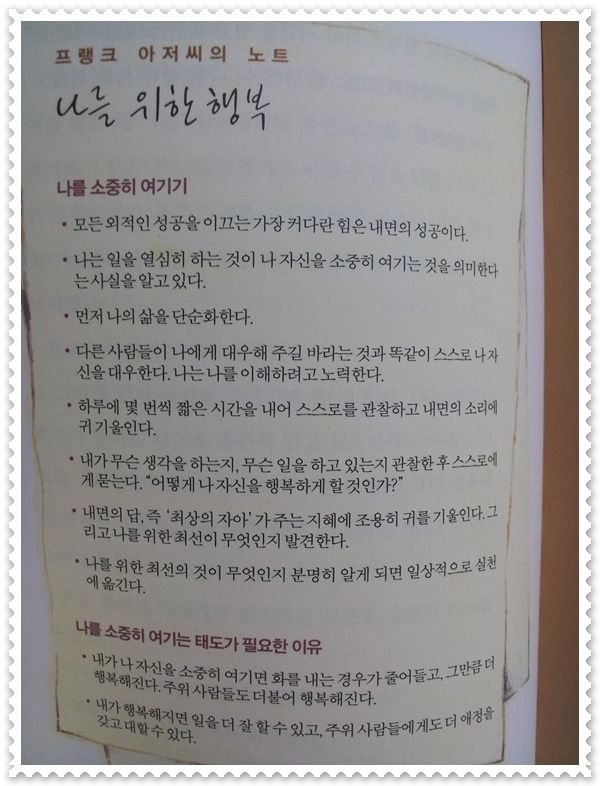 프랭크 아저씨의 노트
나를 위한 행복
나를 소중히 여기기
• 모든 외적인 성공을 이끄는 가장 커다란 힘은 내면의 성공이다.
• 나는 일을 열심히 하는 것이 나 자신을 소중히 여기는 것을 의미한다
는 사실을 알고 있다.
• 먼저 나의 삶을 단순화한다.
• 다른 사람들이 나에게 대우해 주길 바라는 것과 똑같이 스스로 나 자
신을 대우한다. 나는 나를 이해하려고 노력한다.
• 하루에 몇 번씩 짧은 시간을 내어 스스로를 관찰하고 내면의 소리에
귀 기울인다.
• 내가 무슨 생각을 하는지, 무슨 일을 하고 있는지 관찰한 후 스스로에
게 묻는다. “어떻게 나 자신을 행복하게 할 것인가?”
• 내면의 답, 즉 ‘최상의 자아’가 주는 지혜에 조용히 귀를 기울인다. 그
리고 나를 위한 최선이 무엇인지 발견한다.
• 나를 위한 최선의 것이 무엇인지 분명히 알게 되면 일상적으로 실천
에 옮긴다.
나를 소중히 여기는 태도가 필요한 이유
• 내가 나 자신을 소중히 여기면 화를 내는 경우가 줄어들고, 그만큼 더
행복해진다. 주위 사람들도 더불어 행복해진다.
• 내가 행복해지면 일을 더 잘 할 수 있고, 주위 사람들에게도 더 애정을
갖고 대할 수 있다.